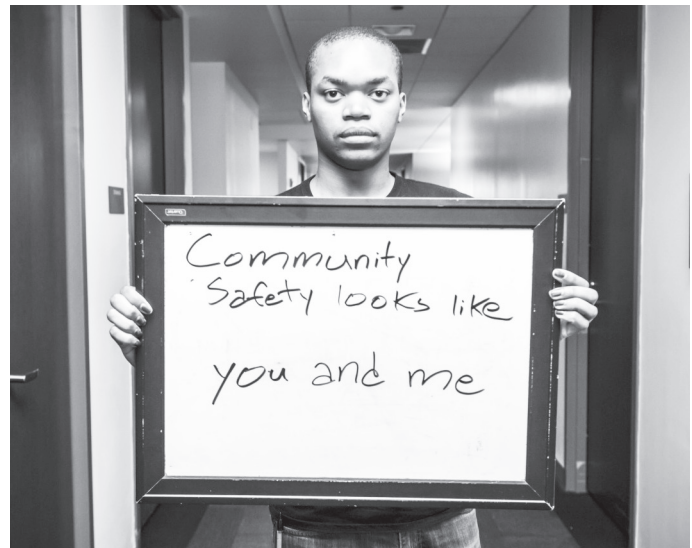 Community
Safety looks like
you and me